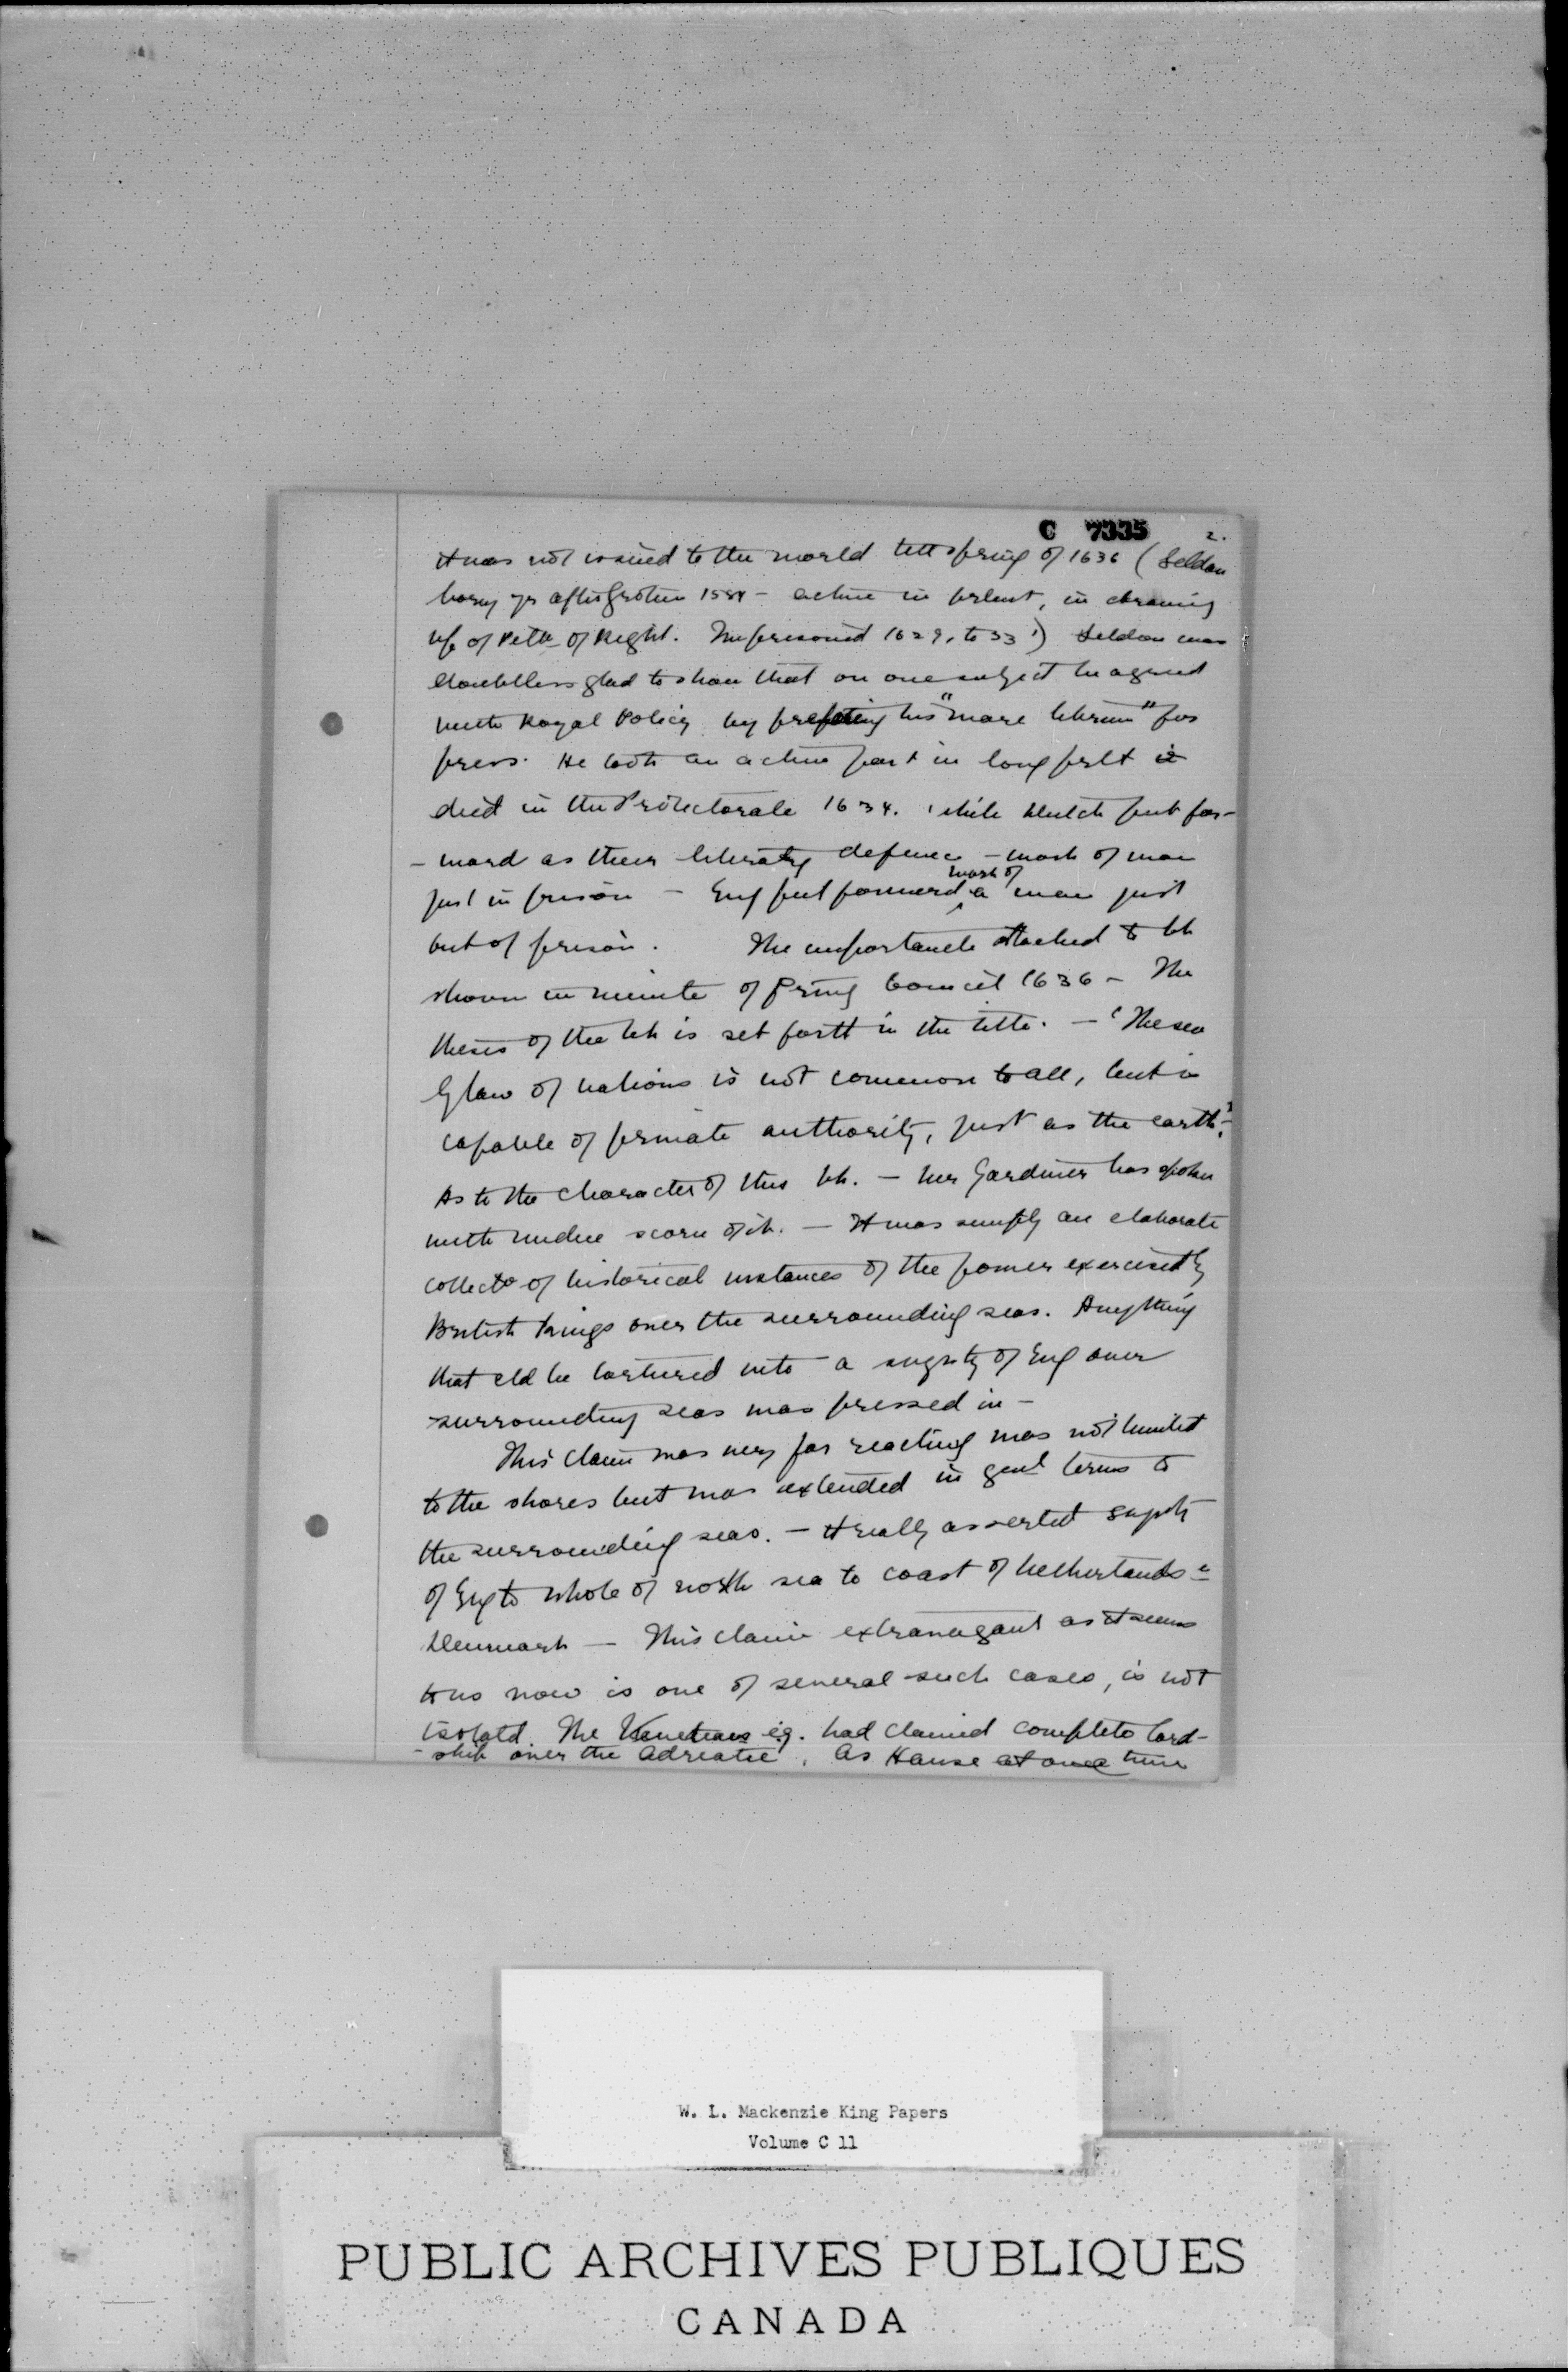 C 7335
2.
it was not issued to the world till spring of 1636 (Seldon
born yr after Grotius 1584 - active in parlmt, in drawing
up of Pettn of Right. Imprisoned 1629, to 33') Seldon was
doubtless glad to show that on one subject he agreed
with Royal Policy by prefering his "mare librum" for
press. He took an active part in long parlt &
died in the Protectorate 1654. while Dutch put for-
- ward as their literary defence - work of man
just in prison - Eng put forward work of a man just
out of prison. The importance attached to bk
shown in minute of Privy Council 1636 - The
thesis of the bk is set forth in the title. - 'The sea
by law of nations is not common to all, but is
capable of private authority, just as the earth.'
As to the character of this bk. - Mr Gardiner has spoken
with undue scorn of it. - It was simply an elaborate
collectn of historical instances of the power exercised by
British kings over the surrounding seas. Anything
that cld be tortured into a svgnty of Eng over
surrounding seas was pressed in -
This claim was very far reaching was not limited
to the shores but was extended in genl terms to
the surrounding seas. - It really asserted supty
of Eng to whole of north sea to coast of Netherlands &
Denmark - This claim extravagant as it seems
to us now is one of several such cases, is not
isolatd. The Venetians e.g. had claimed complete lord-
- ship over the Adriatic, as Hanse at one time
W. L. Mackenzie King Papers
Volume C 11
PUBLIC ARCHIVES PUBLIQUES
CANADA